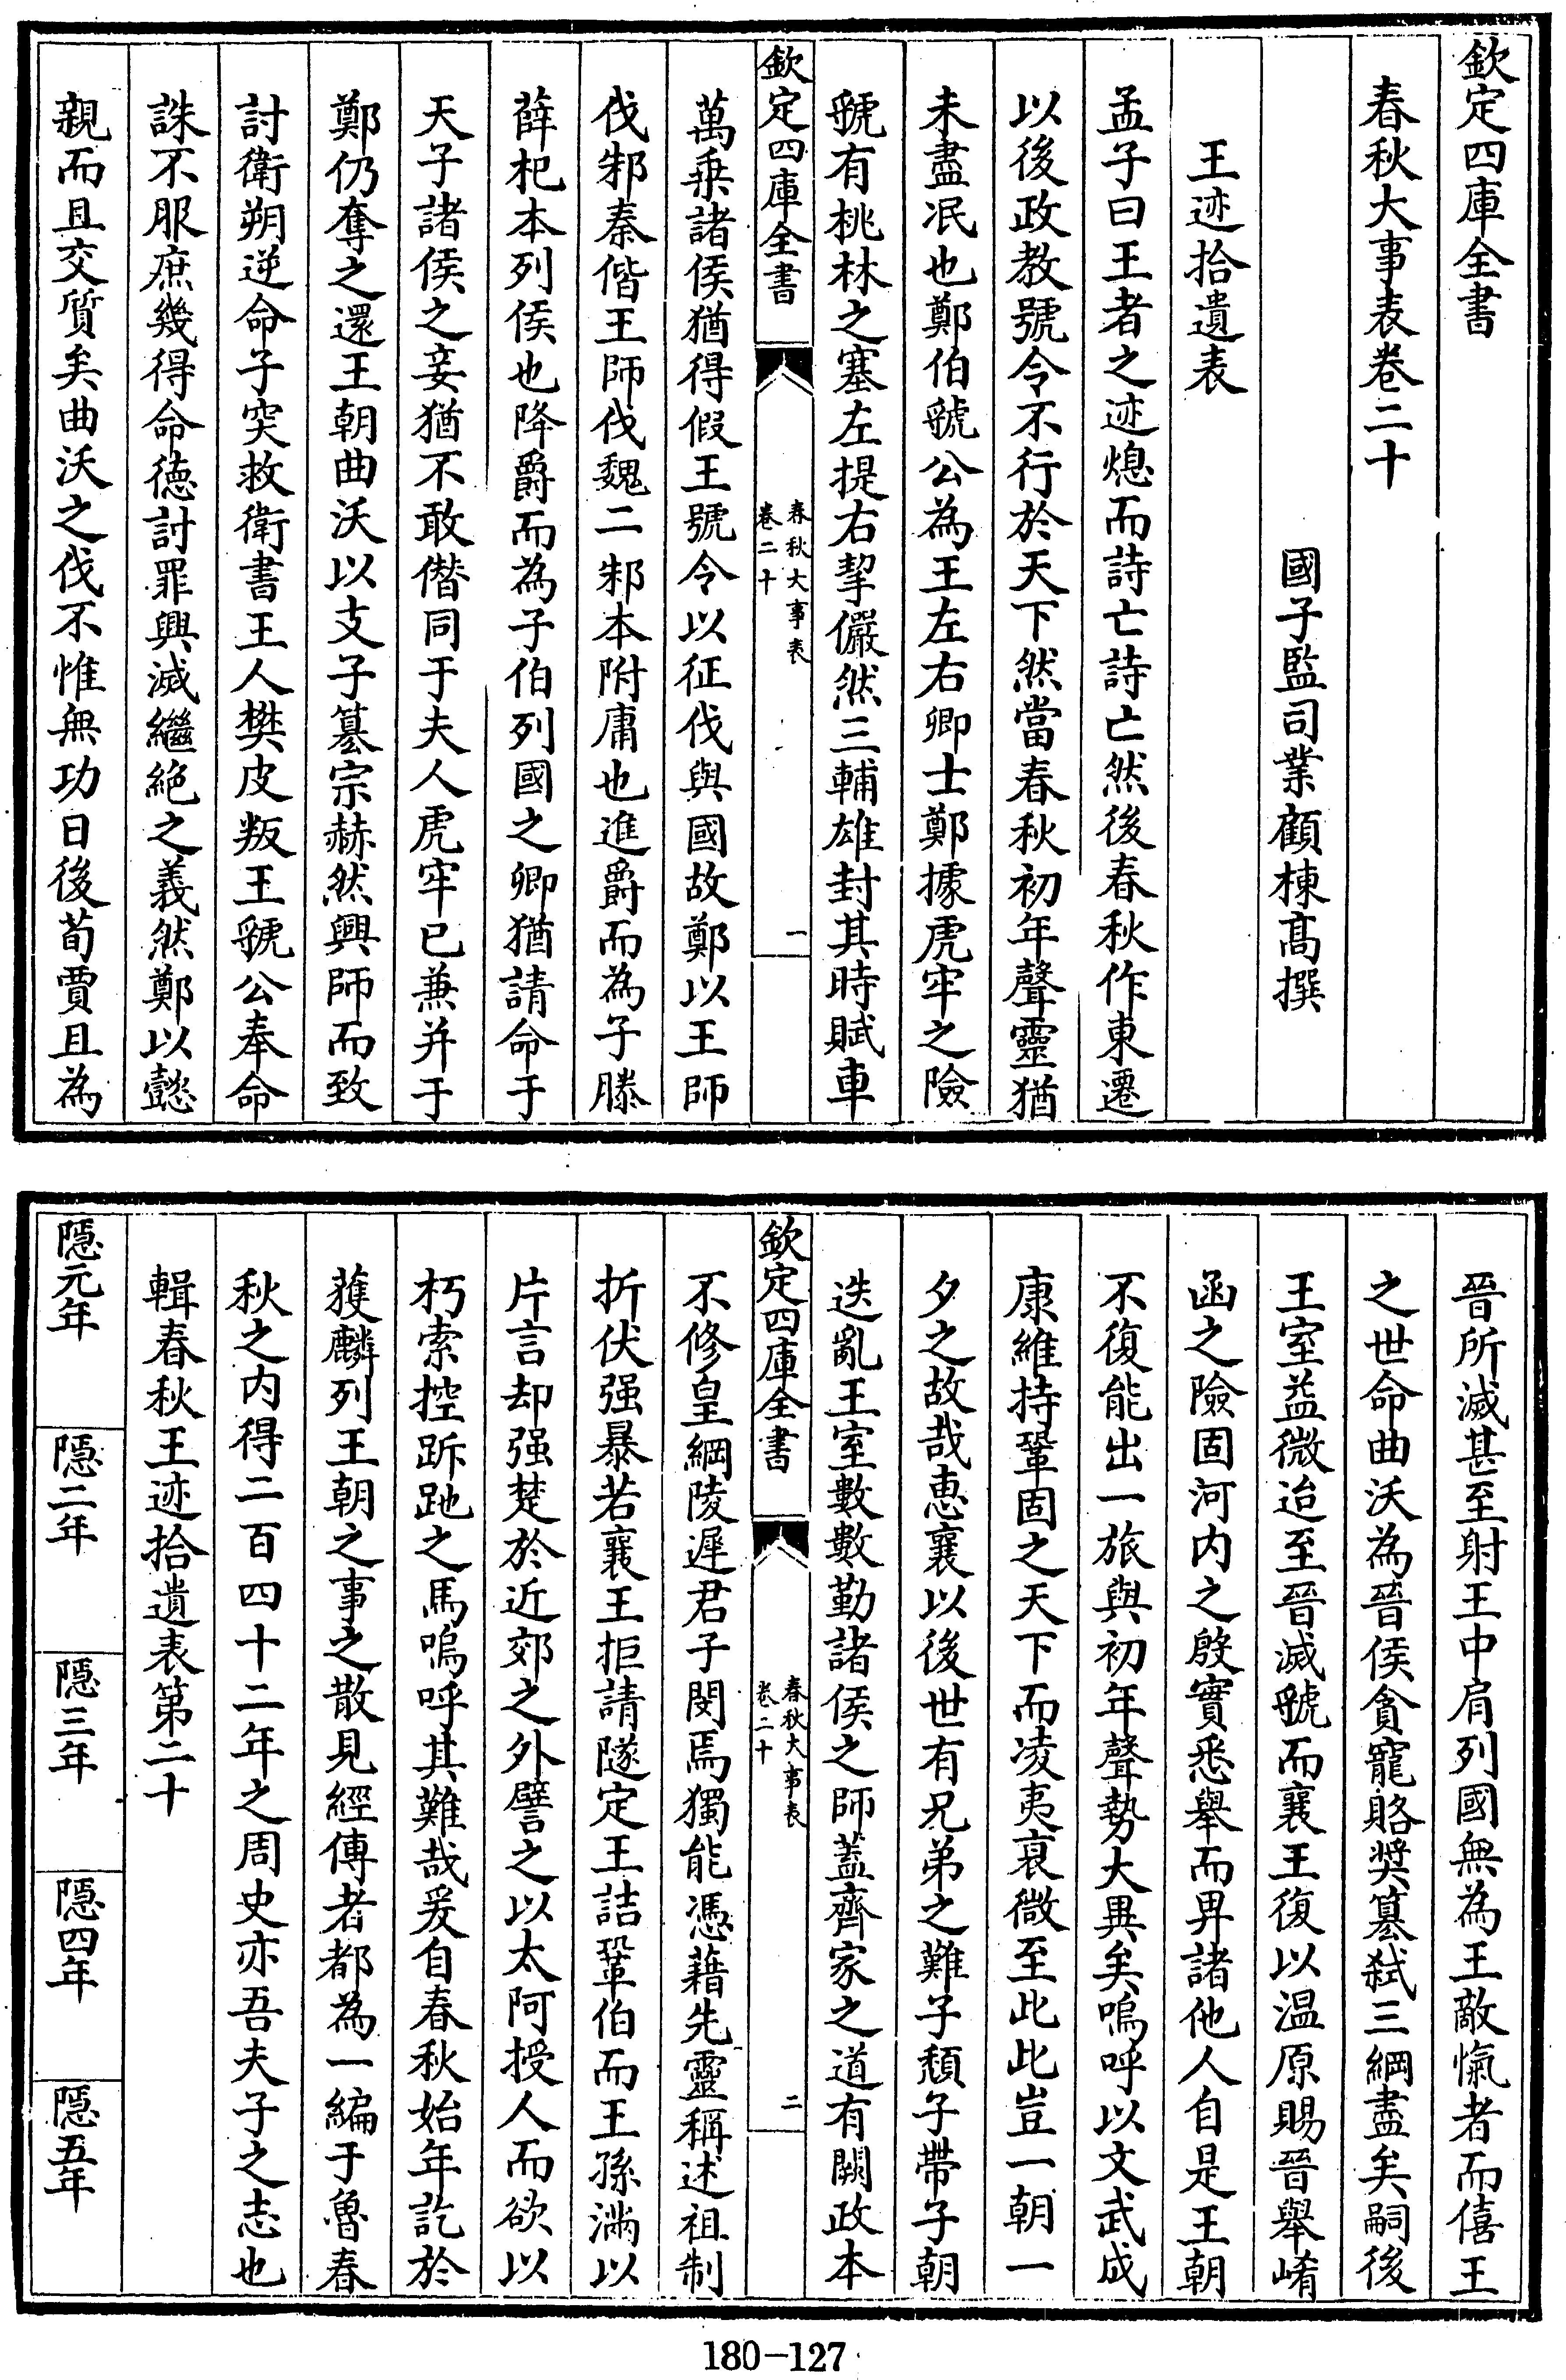 欽定四庫全書
春秋大事表卷二十
國子監司業顧棟髙撰
王迹拾遺表
孟子曰王者之迹熄而詩亡詩亡然後春秋作東遷
以後政教號令不行於天下然當春秋初年聲靈猶
未盡泯也鄭伯虢公為王左右卿士鄭據虎牢之險
虢有桃林之塞左提右挈儼然三輔雄封其時賦車
欽定四庫全書
春秋大事表
卷二十
一
萬乗諸侯猶得假王號令以征伐與國故鄭以王師
伐邾秦偕王師伐魏二邾本附庸也進爵而為子滕
薛杞本列侯也降爵而為子伯列國之卿猶請命于
天子諸侯之妾猶不敢僭同于夫人虎牢已兼并于
鄭仍奪之還王朝曲沃以支子簒宗赫然興師而致
討衛朔逆命子突救衛書王人樊皮叛王虢公奉命
誅不服庶幾得命德討罪興滅繼絶之義然鄭以懿
親而且交質矣曲沃之伐不惟無功日後荀賈且為
晉所滅甚至射王中肩列國無為王敵愾者而僖王
之世命曲沃為晉侯貪寵賂奬簒弑三綱盡矣嗣後
王室益微迨至晉滅虢而襄王復以温原賜晉舉崤
函之險固河内之殷實悉舉而畀諸他人自是王朝
不復能出一旅與初年聲勢大異矣嗚呼以文武成
康維持鞏固之天下而凌夷衰微至此此豈一朝一
夕之故哉惠襄以後世有兄弟之難子頽子帶子朝
迭亂王室數數勤諸侯之師蓋齊家之道有闕政本
欽定四庫全書
春秋大事表
卷二十
二
不修皇綱陵遲君子閔焉獨能憑藉先靈稱述祖制
折伏强暴若襄王拒請隧定王詰鞏伯而王孫滿以
片言却强楚於近郊之外譬之以太阿授人而欲以
朽索控跅跎之馬嗚呼其難哉爰自春秋始年訖於
獲麟列王朝之事之散見經傳者都為一編于魯春
秋之内得二百四十二年之周史亦吾夫子之志也
輯春秋王迹拾遺表第二十
隱元年
隱二年
隱三年
隱四年
隱五年
180-127